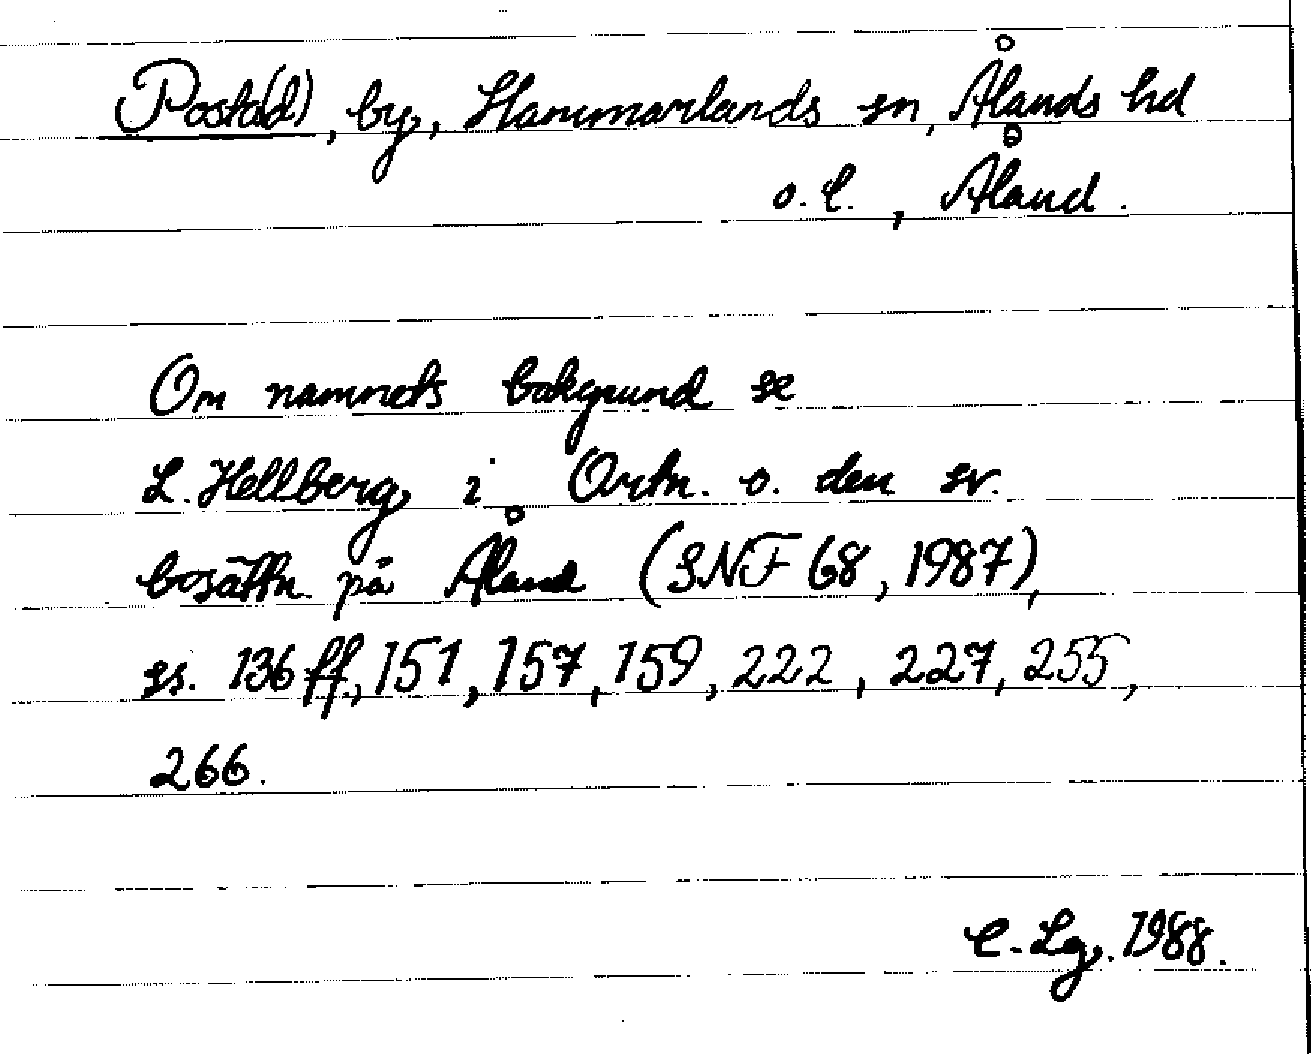 Posta(d), by, Hammarlands sn, Ålands hd
o. l., Åland.
Om namnets bakgrund se
L. Hellberg i Ortn. o. den sv.
bosättn. på Åland (SNF 68, 1987),
ss. 136 ff, 151, 157, 159, 222, 227, 255,
266.
C. Lg. 1988.